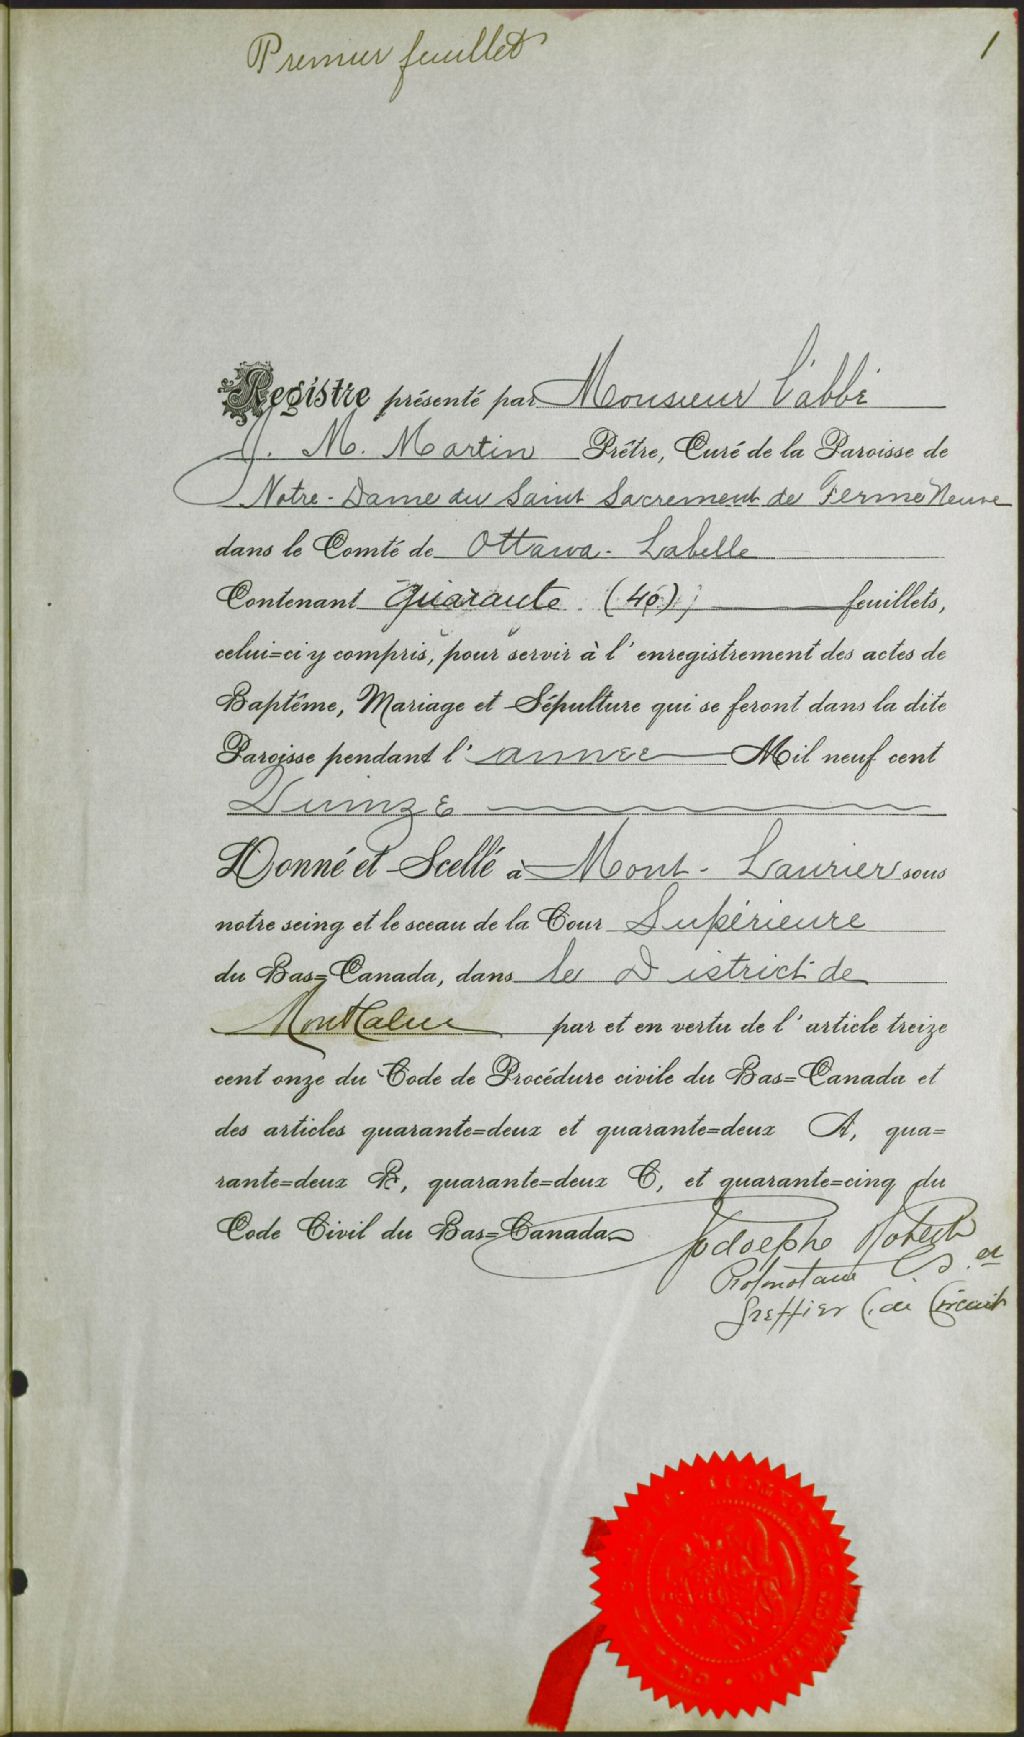 Premier feuillet
1
Registre présenté par Monsieur l'abbé
J. M. Martin Prêtre, Curé de la Paroisse de
Notre-Dame du Saint Sacrement de Ferme Neuve
dans le Comté de Ottawa-Labelle
Contenant quarante (40) feuillets,
celui=ci y compris, pour servir à l'enregistrement des actes de
Baptême, Mariage et Sépulture qui se feront dans la dite
Paroisse pendant l'année Mil neuf cent
Quinze
Donné et Scellé à Mont-Laurier sous
notre seing et le sceau de la Cour Supérieure
du Bas=Canada, dans le District de
Montcalm par et en vertu de l'article treize
cent onze du Code de Procédure civile du Bas=Canada et
des articles quarante=deux et quarante=deux A, qua=
rante=deux B, quarante=deux C, et quarante=cinq du
Code Civil du Bas=Canada
Protonotaire C. S. et
Greffier C. de Circuit